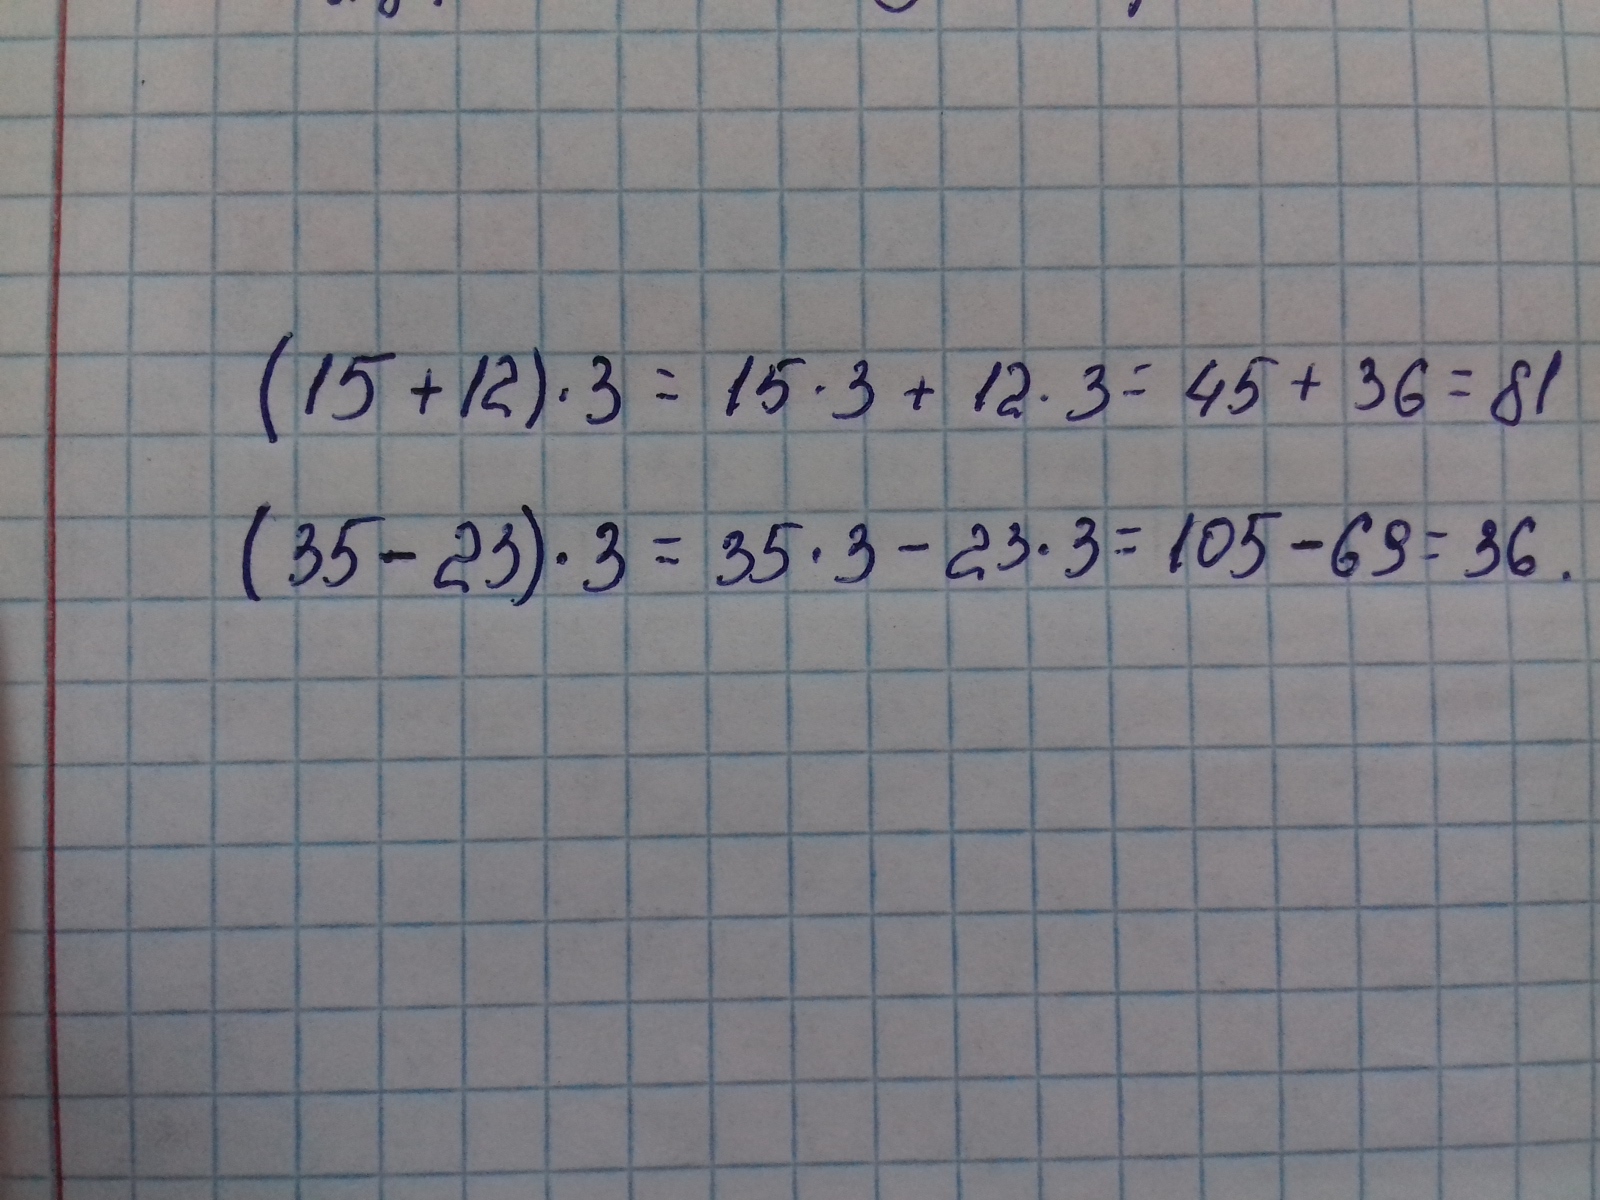 (15 + 12) · 3 = 15 · 3 + 12 · 3 = 45 + 36 = 81
(35 - 23) · 3 = 35 · 3 - 23 · 3 = 105 - 69 = 36.